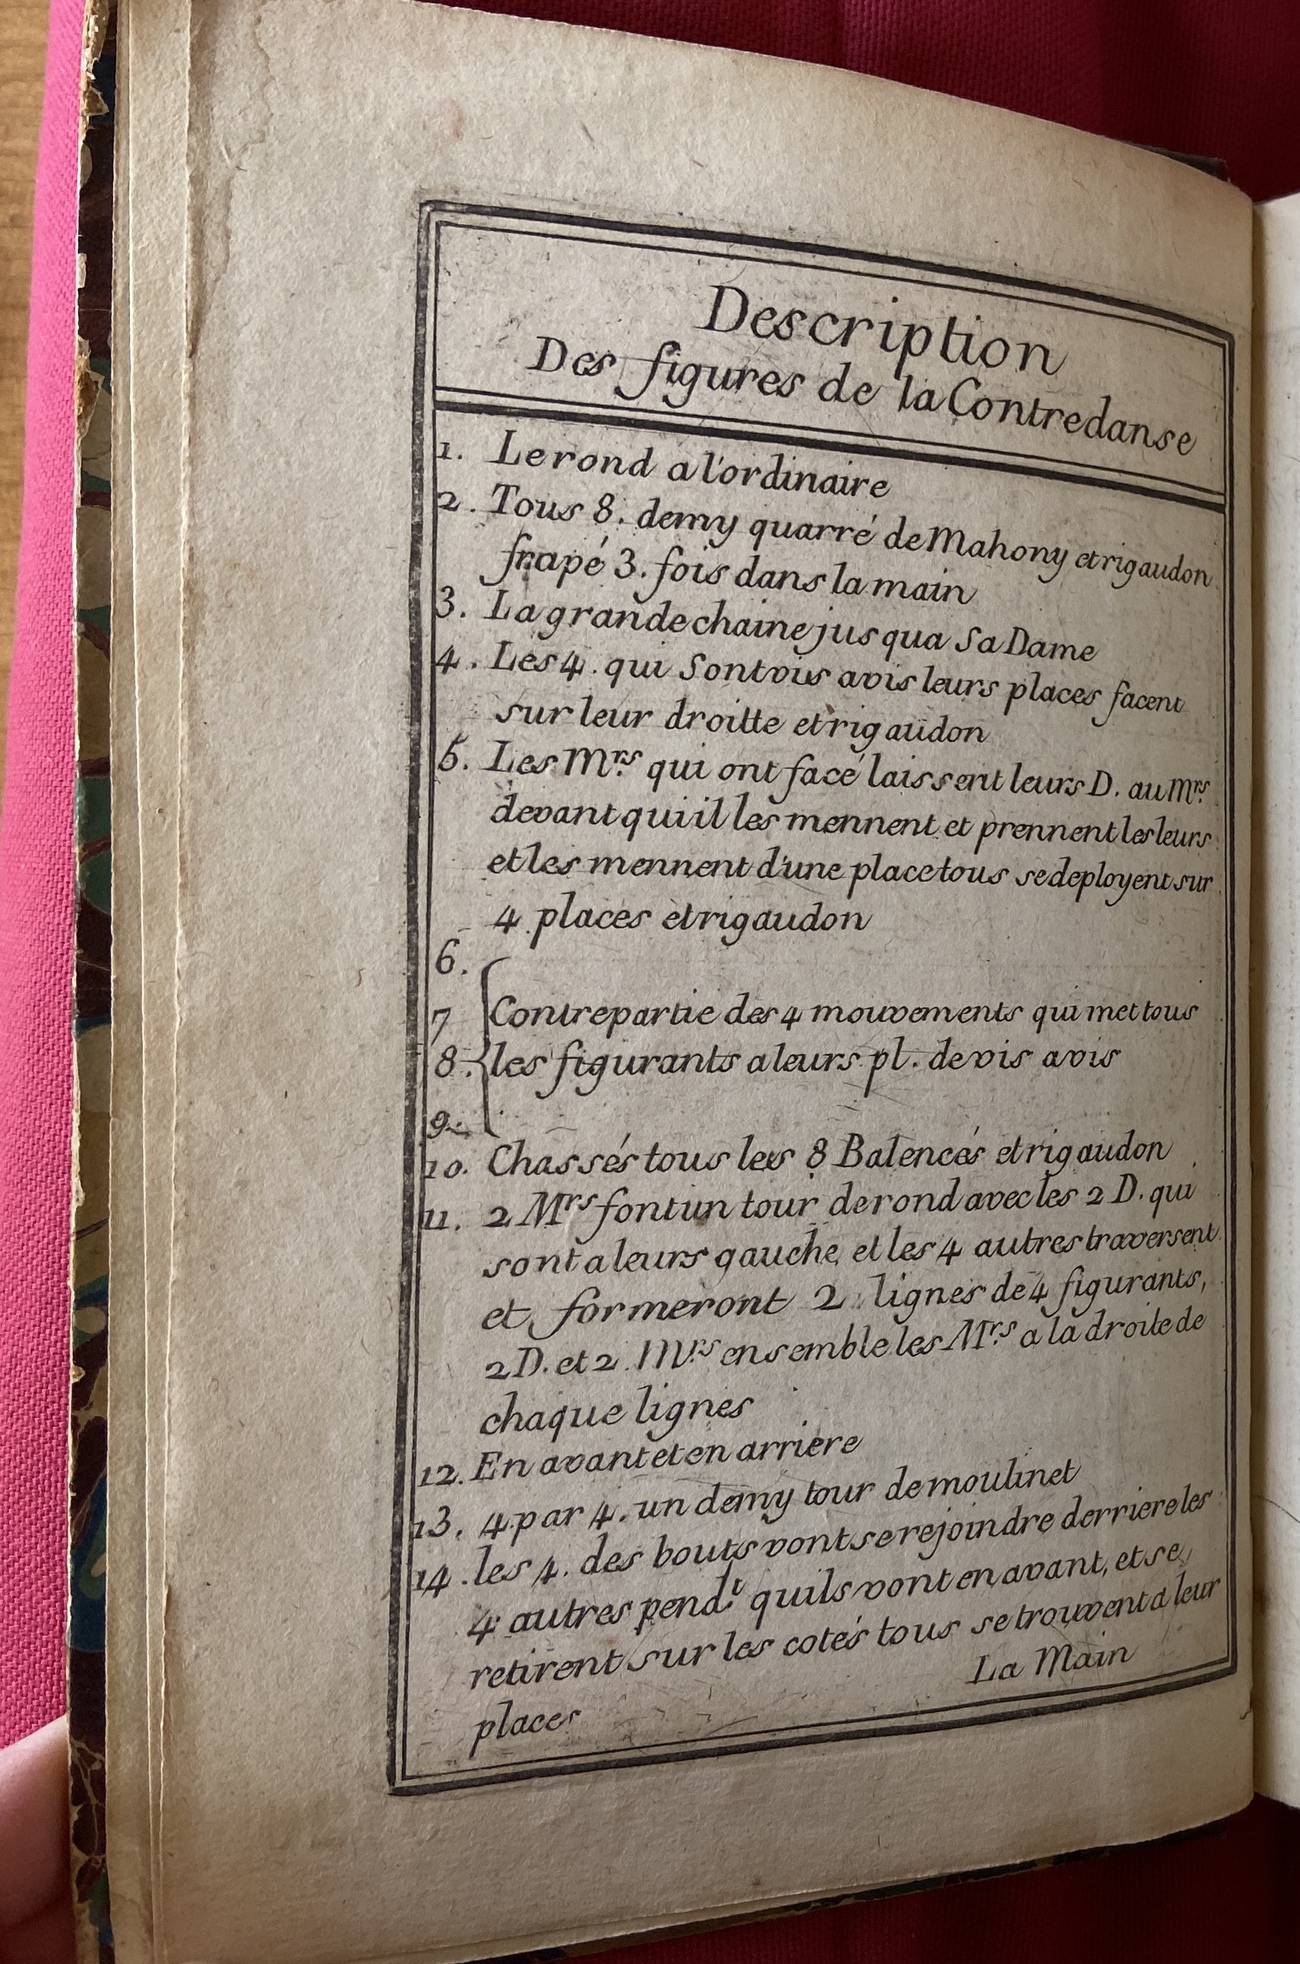 Description
Des figures de la Contredanse
1. Le rond a l'ordinaire
2. Tous 8. demy quarré de Mahony et rigaudon
frapé 3. fois dans la main
3. La grande chaine jusqua Sa Dame
4. Les 4. qui Sont vis avis leurs places facent
sur leur droitte et rigaudon
5. Les Mrs qui ont facé laissent leurs D. au Mrs
devant qui il les mennent et prennent les leurs
et les mennent d'une place tous se deployent sur
4 places et rigaudon
6.
7 Contrepartie des 4 mouvements qui met tous
8. les figurants a leurs pl. de vis avis
9.
10. Chassés tous les 8 Balencés et rigaudon
11. 2 Mrs font un tour de rond avec les 2 D. qui
sont a leurs gauche, et les 4 autres traversent
et formeront 2 lignes de 4 figurants,
2 D. et 2 Mrs ensemble les Mrs a la droite de
chaque lignes
12. En avant et en arriere
13. 4 par 4. un demy tour de moulinet
14. les 4. des bouts vont se rejoindre derriere les
4 autres pendt quils vont en avant, et se
retirent sur les cotés tous se trouvent a leur
places
La Main